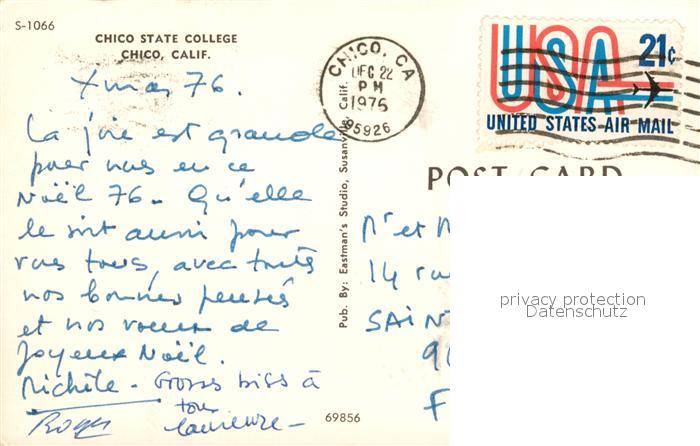 S-1066
CHICO STATE COLLEGE
CHICO, CALIF.
Xmas 76.
La joie est grande
pour nous en ce
Noël 76. Qu'elle
le soit aussi pour
vous tous, avec toutes
nos bonnes pensées
et nos voeux de
Joyeux Noël.
Michèle - Grosses biss à
tous
Roger Laurence -
CHICO, CA
DEC 22
PM
1976
95926
Calif.
USA 21c
UNITED STATES AIR MAIL
POST CARD
Pub. By: Eastman's Studio, Susanville, Calif.
Mr et M
14 ru
SAINT
9
F
69856
privacy protection
Datenschutz